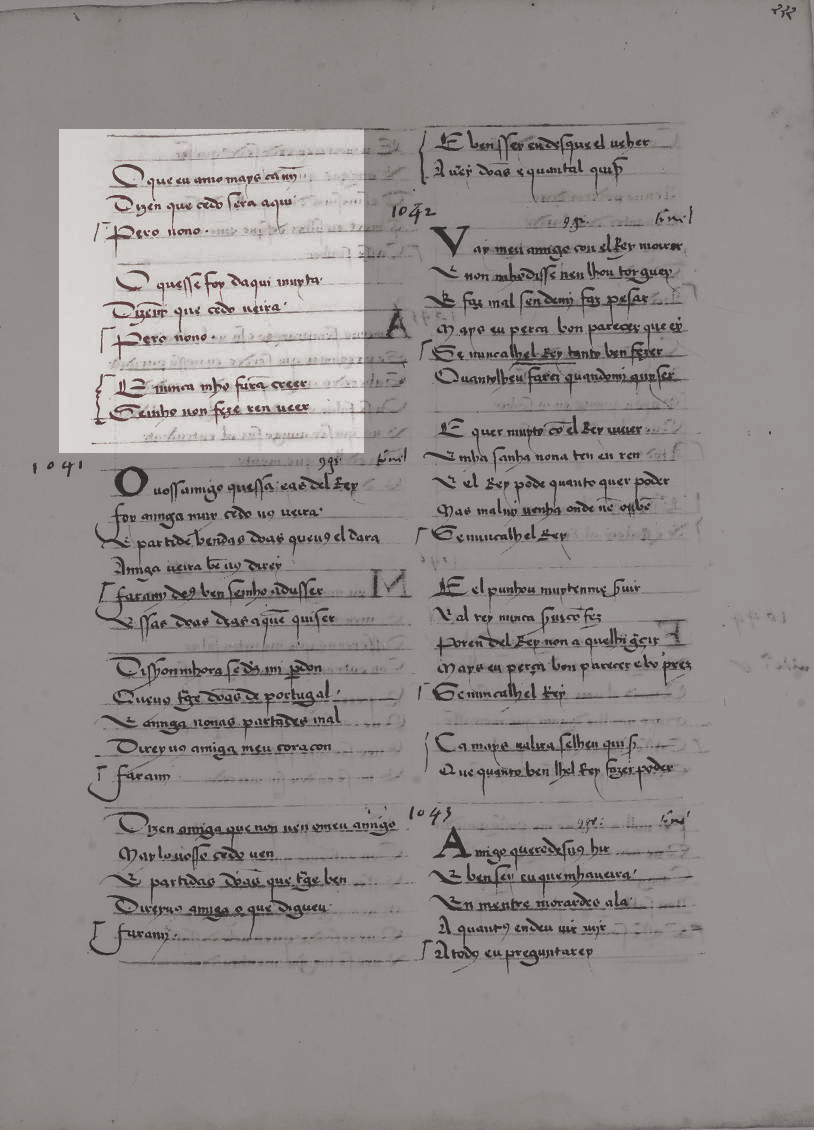 O que eu amo mays ca mỹ
Dizen que cedo sera aqui
Pero nono.
O quesse foy daqui muyta.
Dizemj que cedo ueira.
Pero nono.
E nunca mho fara creer
Semho non feze ren ueer
1041
O uossamigo quessa eas del Rey
foy amiga muy cedo us ueira.
E partide bendas doas queus el dara
Amiga ueira be us direy
faramj deus ben semho adusser
E ssas doas doas aque quiser
Queus trage doas de portugal.
E amiga nonas partades mal
Direyuo amiga meu coraçon
faram
Dizen amiga que non uen omeu amigo
Maylo uosse cedo uen
E partidas doas que trage ben
Direyuo amiga o que digueu
faramj.
E ben sser endesque el ueher
A uerey doas e quantal quis
1042
Vay meu amigo con el Rey morar
E non mhodisse nen lhou torguey
E faz mal sen demi faz pesar
Mays eu perca bon parecer que ey
Se nuncalhel Rey tanto ben fezer
Quantolheu farei quandomi quyser
E quer muyto cõ el Rey uiuer.
E mha sanha nona ten en ren
E el Rey pode quanto quer poder
Mas malmj uenha onde
Se nuncalhel Rey
E el punhou muytenme
E al rey nunca
Poren del Rey non a
Mays eu perça bon parecer e lo prez
Se nuncalhel Rey
Ca mays ualrra selhen quis
Que quanto ben lhel Rey fazer poder
1043
Amigo queredesus hir
E ben sey eu quemhaueira.
En mentre morardes ala
A quantus endeu uir
A todus eu preguntarey